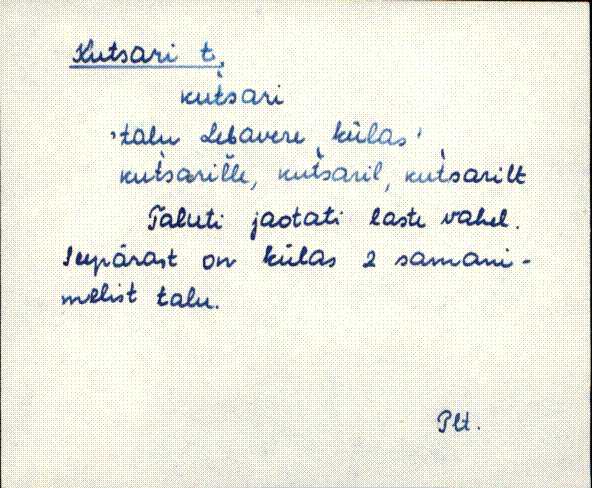 Kutsari t.
kut̀sari
'talu Lebavere külas'
kut̀sarille, kut̀saril, kut̀sarilt
Taluti jaotati laste vahel.
Seepärast on külas 2 samani-
melist talu.
Plt.